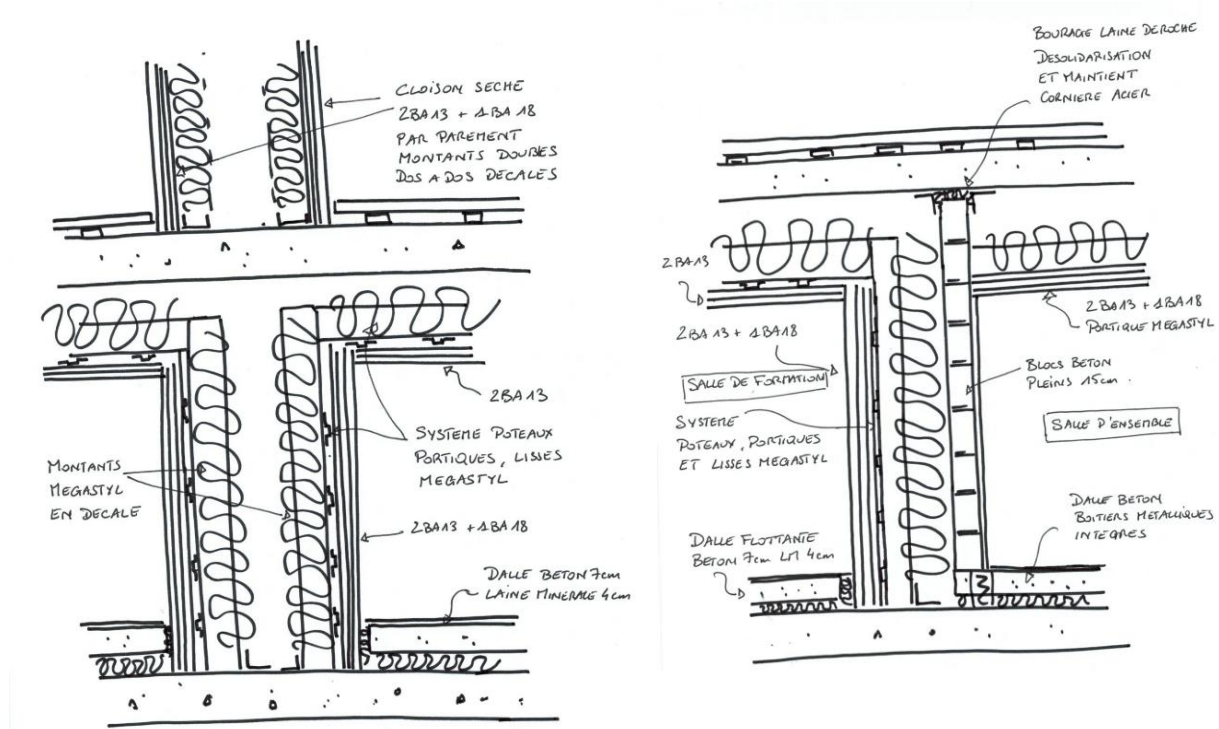 CLOISON SECHE
2BA13 + 1BA18
PAR PAREMENT
MONTANTS DOUBLES
DOS A DOS DECALES
2BA13
SYSTEME POTEAUX
PORTIQUES, LISSES
MEGASTYL
MONTANTS
MEGASTYL
EN DECALE
2BA13 + 1BA18
DALLE BETON 7cm
LAINE MINERALE 4cm
BOURAGE LAINE DE ROCHE
DESOLIDARISATION
ET MAINTIENT
CORNIERE ACIER
2BA13
2BA13 + 1BA18
SALLE DE FORMATION
SYSTEME
POTEAUX, PORTIQUES
ET LISSES MEGASTYL
DALLE FLOTTANTE
BETON 7cm LM 4cm
2BA13 + 1BA18
PORTIQUE MEGASTYL
BLOCS BETON
PLEINS 15cm.
SALLE D'ENSEMBLE
DALLE BETON
BOITIERS METALLIQUES
INTEGRES